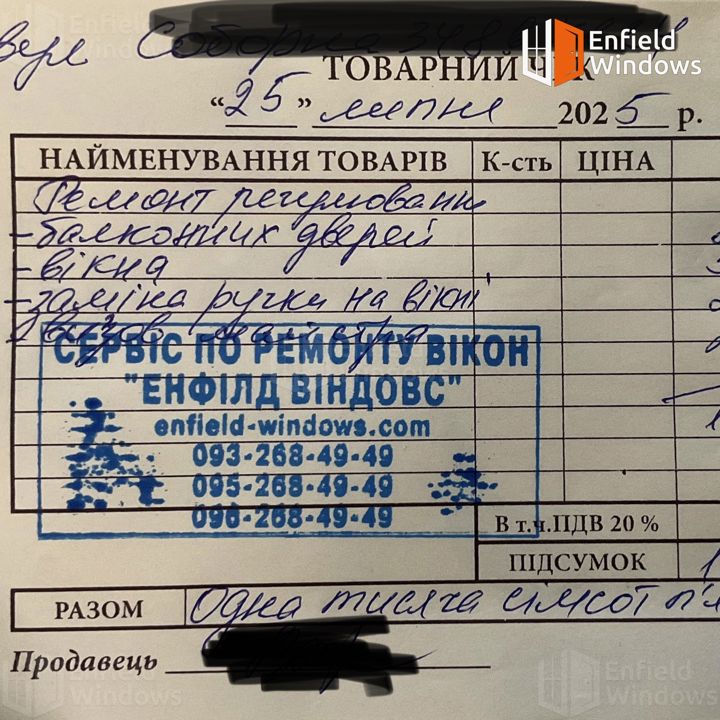 вул Соборна 348
Enfield
Windows
ТОВАРНИЙ ЧЕК
"25" липня 2025 р.
НАЙМЕНУВАННЯ ТОВАРІВ К-сть ЦІНА
Ремонт регулювання
-балконних дверей
-вікна
-заміна ручки на вікні
Визов майстра
СЕРВІС ПО РЕМОНТУ ВІКОН
"ЕНФІЛД ВІНДОВС"
enfield-windows.com
093-268-49-49
095-268-49-49
096-268-49-49
В т.ч.ПДВ 20 %
ПІДСУМОК 1
РАЗОМ Одна тисяча сімсот п'я
Продавець
Enfield
Windows